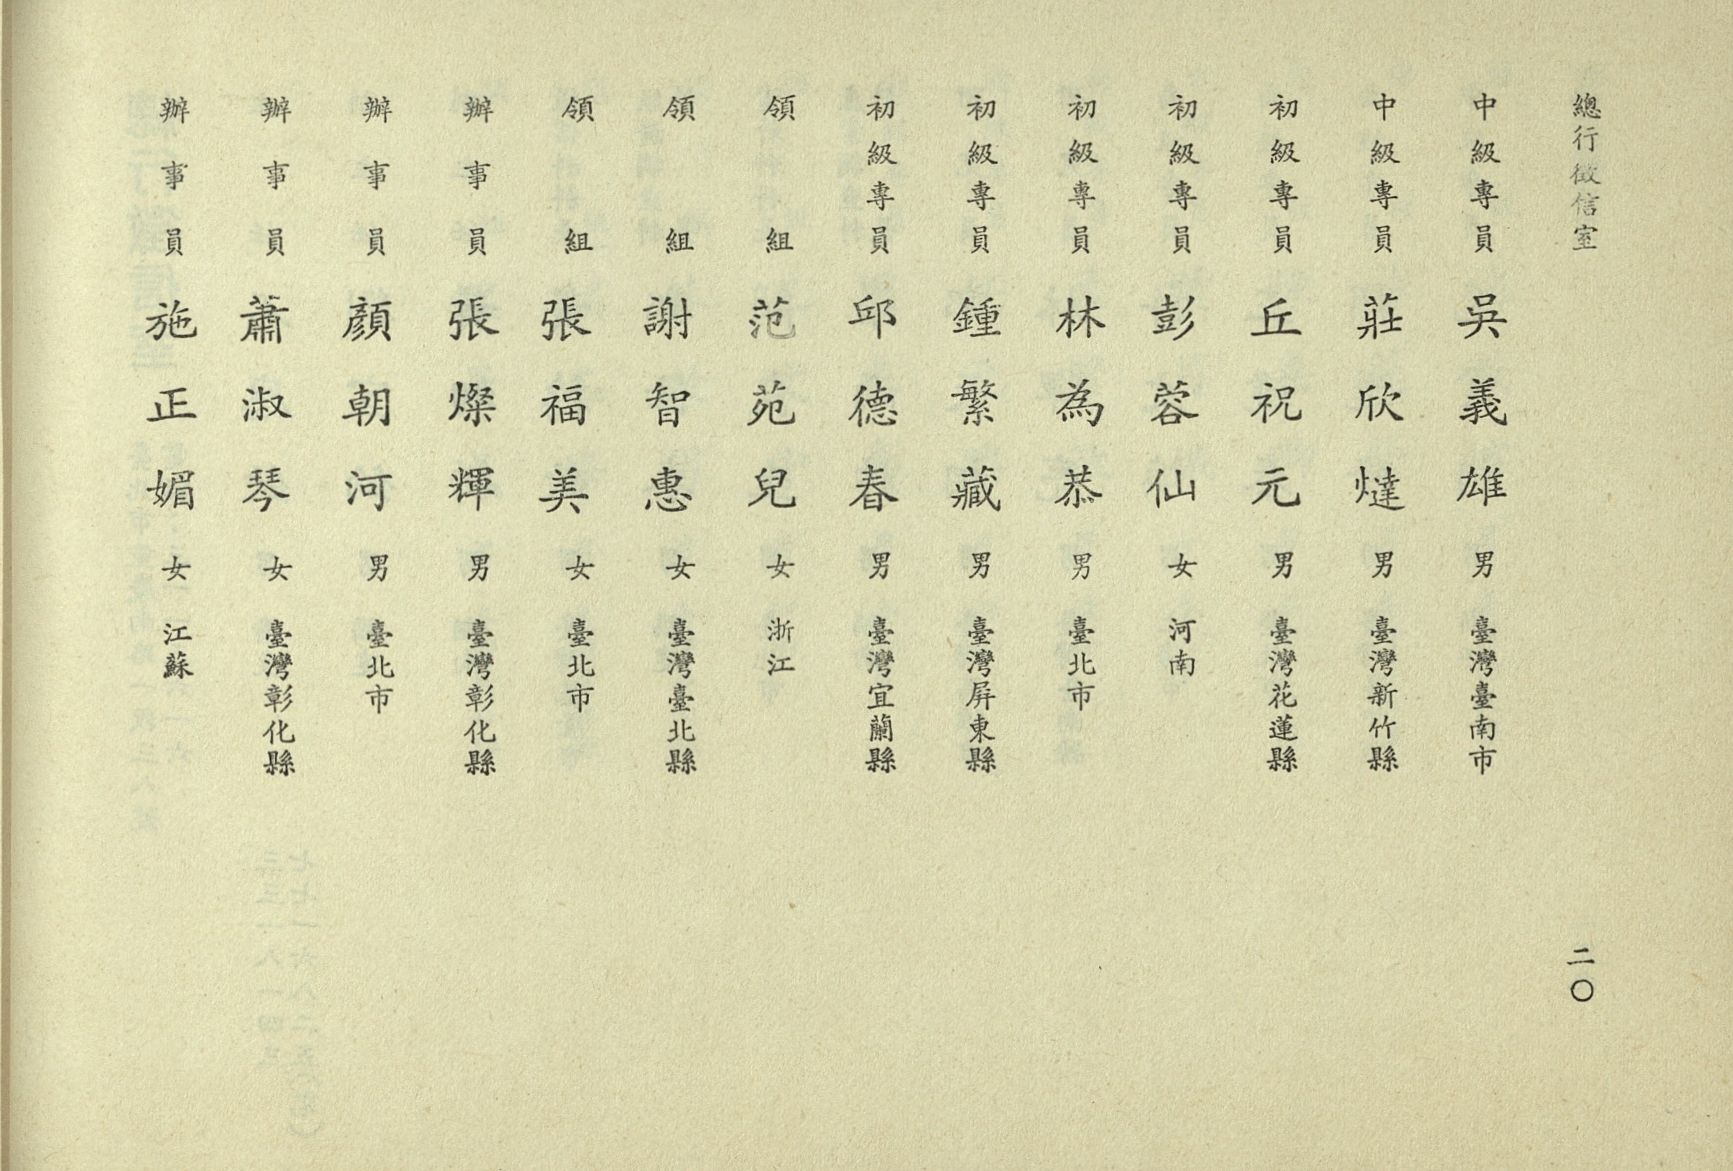 總行徵信室
二〇
中級專員 吳義雄 男 臺灣臺南市
中級專員 莊欣燵 男 臺灣新竹縣
初級專員 丘祝元 男 臺灣花蓮縣
初級專員 彭蓉仙 女 河南
初級專員 林為恭 男 臺北市
初級專員 鍾繁藏 男 臺灣屏東縣
初級專員 邱德春 男 臺灣宜蘭縣
領組 范苑兒 女 浙江
領組 謝智惠 女 臺灣臺北縣
領組 張福美 女 臺北市
辦事員 張燦輝 男 臺灣彰化縣
辦事員 顏朝河 男 臺北市
辦事員 蕭淑琴 女 臺灣彰化縣
辦事員 施正媚 女 江蘇